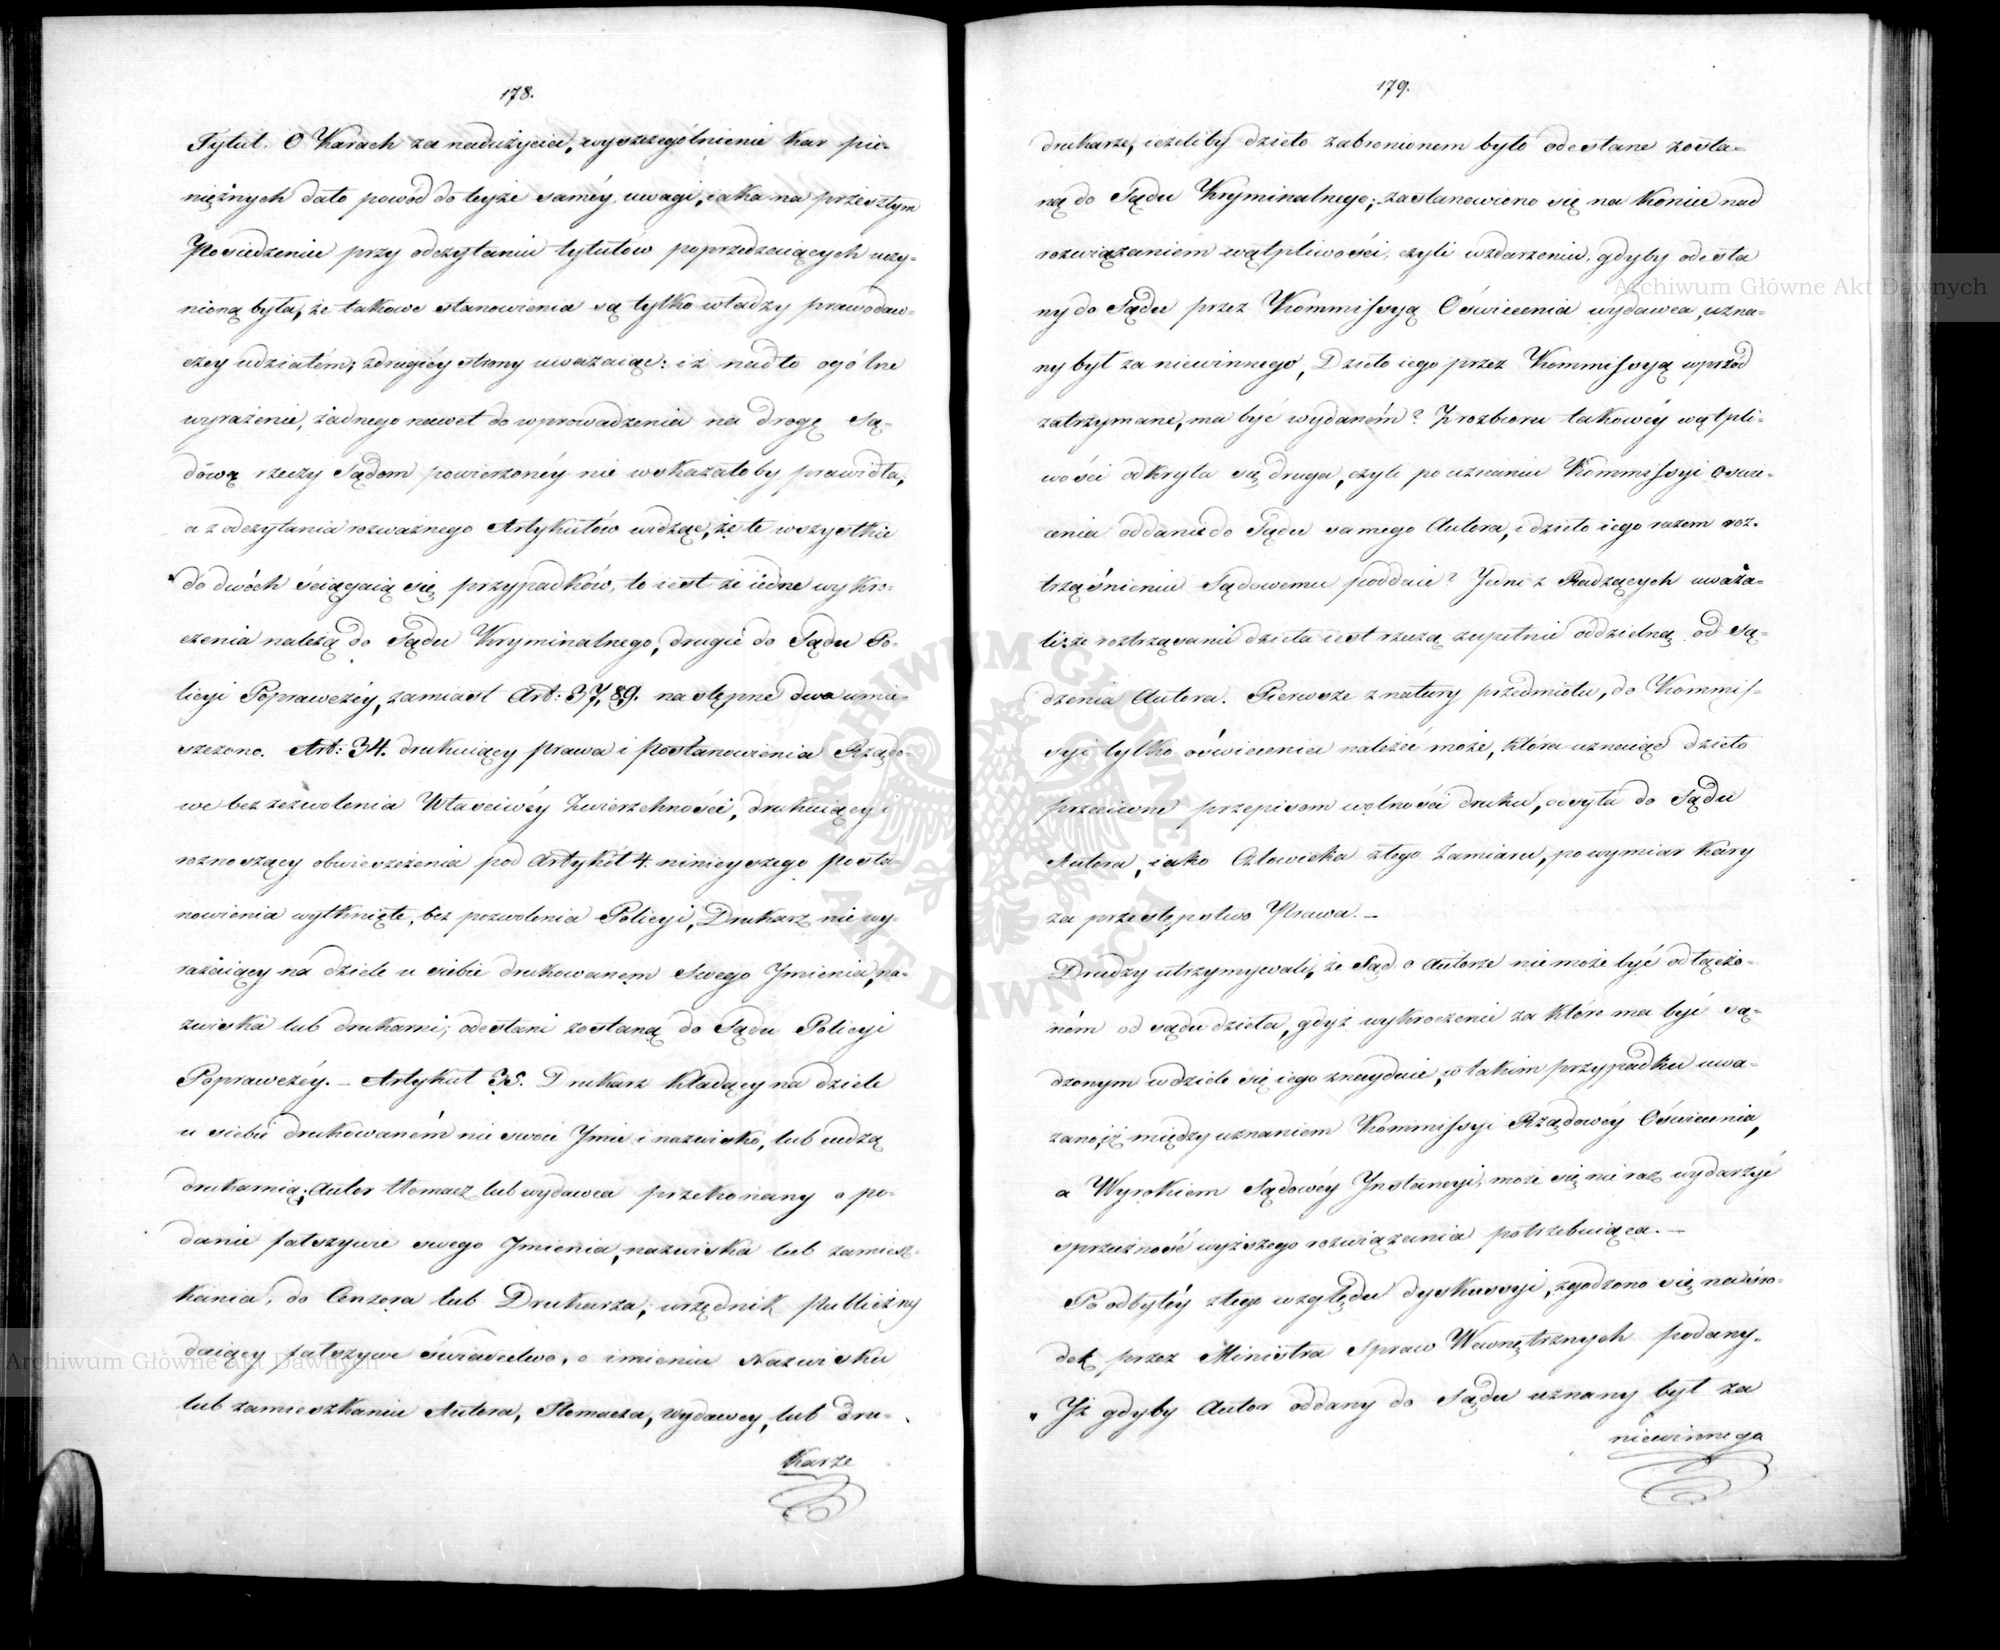 178.
Tytuł. O Karach za nadużycia, wyszczególnienie kar pie-
niężnych dało powód do teyże saméy uwagi, iaka na przeszłym
Posiedzeniu przy odczytaniu tytułów poprzedzaiących uczy-
nioną była, że takowe stanowienia są tylko władzy prawodaw-
czey udziałém; zdrugiéy strony uważaiąc: iż nadto ogólne
wyrażenie, żadnego nawet do wprowadzenia na drogę Są-
dową rzeczy Sądom powierzonéy nie wskazałoby prawidła,
a z odczytania rozważnego Artykułów widząc, że te wszystkie
do dwóch ściągaią się przypadków, to iest że iedne wykro-
czenia należą do Sądu Kryminalnego, drugie do Sądu Po-
licyi Poprawczéy, zamiast Art: 37, 8, 9. następne dwa umie-
szczono. Art: 34. drukuiący prawa i postanowienia Rządo-
we bez zezwolenia Właściwéy Zwierzchności, drukuiący i
roznoszący obwieszczenia pod Artykół 4. ninieyszego posta-
nowienia wytknięte, bez pozwolenia Policyi, Drukarz nie wy-
rażaiący na dziele u siebie drukowanem Swego Jmienia, na-
zwiska lub drukarni; odesłani zostaną do Sądu Policyi
Poprawczéy. – Artykuł 35. Drukarz kładący na dziele
u siebie drukowaném nie swoie Jmie i nazwisko, lub cudzą
drukarnią; Autor tłomacz lub wydawca przekonany o po-
danie fałszywe swego Jmienia, nazwiska lub zamiesz-
kania, do Cenzora lub Drukarza; urzędnik publiczny
daiący fałszywe świadectwo, o imieniu Nazwisku
lub zamieszkaniu Autora, Tłomacza, wydawcy, lub dru-
karze
179.
drukarze, ieżeliby dzieło zabronionem było odesłane zosta-
ną do Sądu Kryminalnego; zastanowiono się na koniec nad
rozwiązaniém wątpliwości, czyli wzdarzeniu, gdyby odesła
ny do Sądu przez Kommissyą Oświecenia wydawca, uzna-
ny był za niewinnego, Dzieło iego przez Kommissyą wprzód
zatrzymane, ma być wydaném? Z rozbioru takowéy wątpli-
wości odkryła się druga, czyli po uznaniu Kommissyi Oświe-
cenia oddanie do Sądu samego Autora, i dzieło iego razem roz-
trząśnieniu Sądowemu poddaie? Jedni z Radzących uważa-
li: że roztrząsanie dzieła iest rzeczą zupełnie oddzielną od Są-
dzenia Autora. Pierwsze z natury przedmiotu, do Kommis-
syi tylko oświecenia należeć może, która uznaiąc dzieło
przeciwne przepisom wolności druku, odsyła do Sądu
Autora, iako Człowieka złego Zamiaru, po wymiar kary
za przestępstwo Prawa. –
Drudzy utrzymywali, że Sąd o Autorze nie może być odłączo-
ném od sądu dzieła, gdyż wykroczenie za które ma być są-
dzonym w dziele się iego znayduie, w takim przypadku uwa-
żano, iż między uznaniem Kommissyi Rządowéy Oświecenia,
a Wyrokiem Sądowéy Jnstancyi, może się nie raz wydarzyć
sprzeczność wyższego rozwiązania potrzebuiąca. –
Po odbytéy z tego względu dyskussyi, zgodzono się na śro-
dek przez Ministra Spraw Wewnętrznych podany.
„ Jż gdyby Autor oddany do Sądu uznany był za
niewinnego
ARCHIWUM GŁÓWNE AKT DAWNYCH
Archiwum Główne Akt Dawnych
Archiwum Główne Akt Dawnych